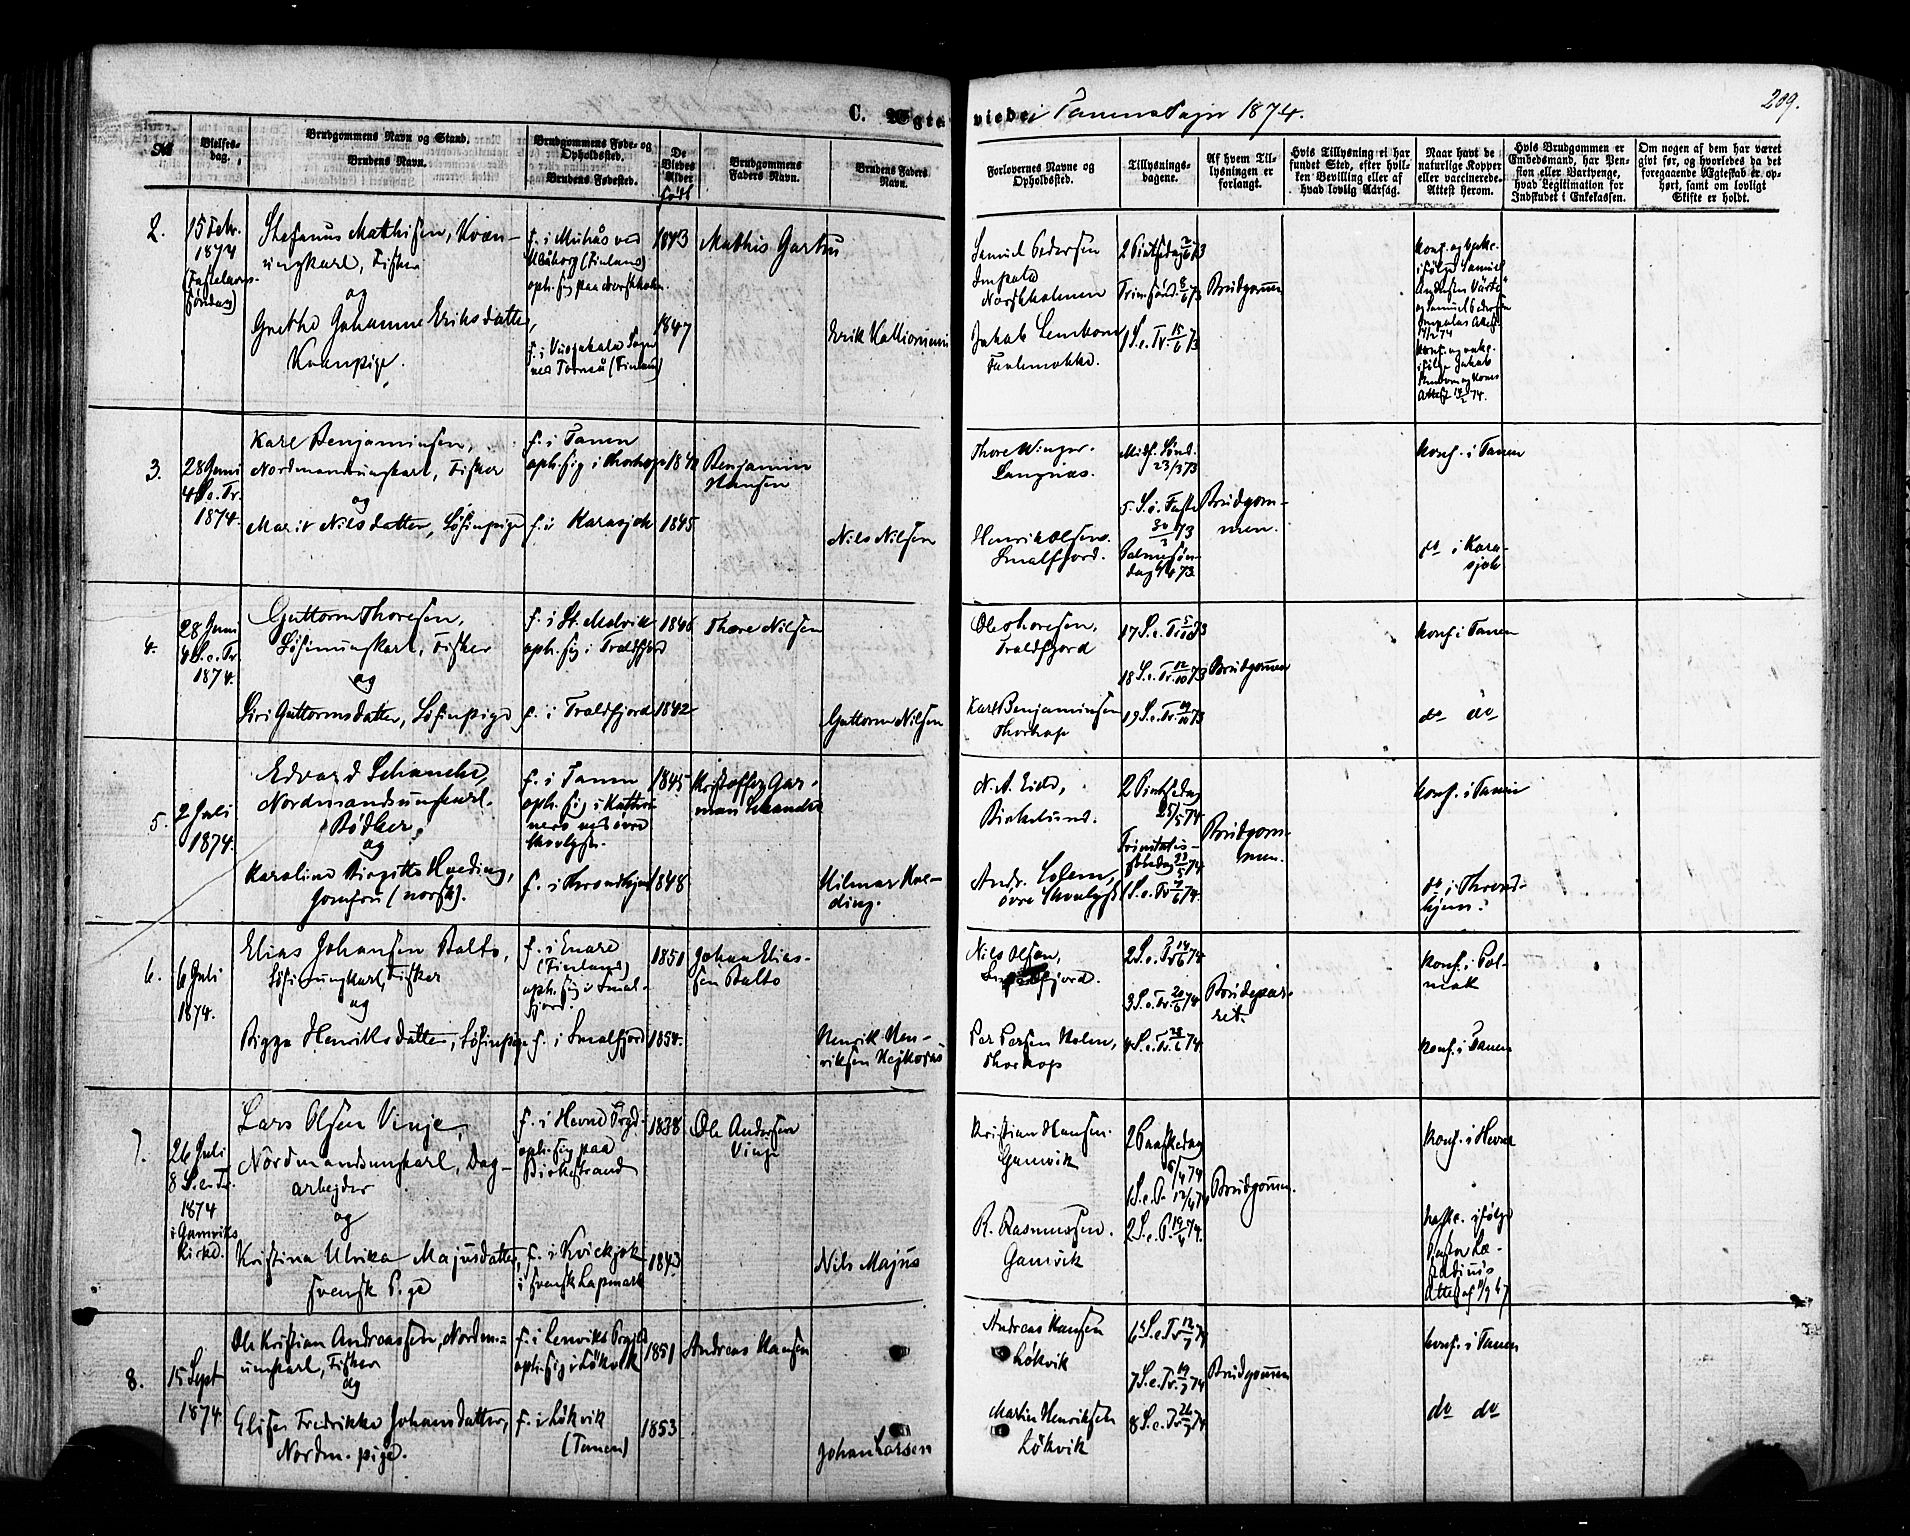 C. Ægte
viede i Tanens Sogn 1874.
209.
№
Vielses-
dag.
Brudgommens Navn og Stand.
Brudens Navn.
Brudgommens Føde- og
Opholdssted.
Brudens Fødested.
De
Viedes
Alder
født
Brudgommens
Faders Navn.
Brudens Faders
Navn.
Forlovernes Navne og
Opholdssted.
Tillysnings-
dagene.
Af hvem Til-
lysningen er
forlangt.
Hvis Tillysning ei har
fundet Sted, efter hvil-
ken Bevilling eller af
hvad lovlig Aarsag.
Naar havt de
naturlige Kopper
eller vaccinerede.
Attest herom.
Hvis Brudgommen er
Embedsmand, har Pen-
sion eller Vartpenge,
hvad Legitimation for
Indskudet i Enkekassen.
Om nogen af dem har været
givt før, og hvorledes da det
foregaaende Ægteskab er op-
hørt, samt om lovligt
Skifte er holdt.
2.
15 Febr.
1874
(Fastelavns-
søndag)
Stefanus Matthisen, Kvæn-
ungkarl, Fisker
og
Grethe Johanne Eriksdatter,
Kvænpige.
f. i Muhås ved
Uleåborg (Finland)
oph. sig paa
f. i
ved Torneå (Finland)
1843
1847
Mathis
Erik
Samuel Pedersen
Jakob
2 Pintsedag 2/6 73
Trin. Sønd. 8/6 73
1 S. e. Tr. 15/6 73
Brudgommen
konf. og
ifølge Samuel
og Samuel Pedersen
Attest
konf. og
ifølge Jakob
Attest 14/2 74.
3.
28 Juni
4 S. e. Tr.
1874.
Karl Benjaminsen,
Nordmandsungkarl, Fisker
og
Marit Nilsdatter, Søfinpige
f. i Tanen
oph. sig i Thorhop
f. i Karasjok
1845
Benjamin
Hansen
Nils Nilsen
Thore Winger
Langnæs.
Henrik Olsen
Smalfjord.
Midf. Sønd.
23/3 73
5. S. i Faste
30/3 73
Palmesøn-
dag 6/4 73
Brudgom-
men.
konf. i Tanen
do i Kara-
sjok
4.
28 Juni
4 S. e. Tr.
1874.
Guttorm Thoresen,
Søfinungkarl, Fisker
og
Siri Guttormsdatter, Søfinpige
f. i St. Molvik
oph. sig i Troldfjord
f. i Troldfjord
1842
Thore Nilsen
Guttorm Nilsen
Ole Thoresen,
Troldfjord
Karl Benjaminsen
Thorhop
17 S. e. Tr. 5/10 73
18 S. e. Tr. 12/10 73
19 S. e. Tr. 19/10 73
Brudgommen
konf. i Tanen
do do
5.
2 Juli
1874.
Edvard Schanche,
Nordmandsungkarl.
Bødker,
og
Karoline Birgitte Hveding,
Jomfru (norsk).
f. i Tanen
oph. sig i
næs ved øvre
f. i Throndhjem
1845
1848
Kristoffer Gar-
man Schanche
Hilmar Hve-
ding.
N. A. Eide,
Birkelund.
Andr. Solem,
øvre
2 Pintsedag
25/5 74
Trinitatis-
31/5 74
1 S. e. Tr. 7/6 74.
Brudgom-
men.
konf. i Tanen
do i Thrond-
hjem.
6.
6 Juli
1874.
Elias Johansen Balto,
Søfinungkarl, Fisker
og
Bigga Henriksdatter, Søfinpige
f. i Enare
(Finland)
oph. sig i Smal-
fjord.
f. i Smalfjord
1851
1854.
Johan Elias-
sen Balto
Henrik Hen-
riksen
Nils Olsen,
Smalfjord.
Per Persen Holm,
Thorhop
2 S. e. Tr. 14/6 74
3 S. e. Tr. 20/6 74
4 S. e. Tr. 28/6 74.
Brudepar-
ret.
konf. i Pol-
mak
konf. i Tanen
7.
26 Juli
8 S. e. Tr.
1874
i Gamviks
Kirke.
Lars Olsen Vinje,
Nordmandsungkarl, Dag-
arbejder
og
Kristina Ulrika Majusdatter,
svensk Pige
f. i Hevne Prgd.
oph. sig paa
Birkestrand
f. i Kvickjok
i svensk Lapmark
1838
1843
Ole Andersen
Vinje
Nils Majus
Kristian Hansen.
Gamvik
R. Rasmussen.
Gamvik
2 Paaskedag
6/4 74
1 S. e. P. 12/4 74
2 S. e. P. 19/4 74.
Brudgommen.
konf. i Hevne
ifølge
Pastor Læ-
stadius
Attest af
8.
15 Sept
1874.
Ole Kristian Andreassen, Nordm.-
ungkarl, Fisker
og
Elisa Fredrikke Johansdatter,
Nordm. pige.
f. i Lenviks Prgjld
oph. sig i Løkvik
f. i Løkvik
(Tanen)
1851
1853
Andreas Hansen
Johan Larsen
Andreas Hansen
Løkvik
Martin Henriksen
Løkvik
6 S. e. Tr. 12/7 74
7 S. e. Tr. 19/7 74
8 S. e. Tr. 26/7 74.
Brudgommen
konf. i Tanen
do do